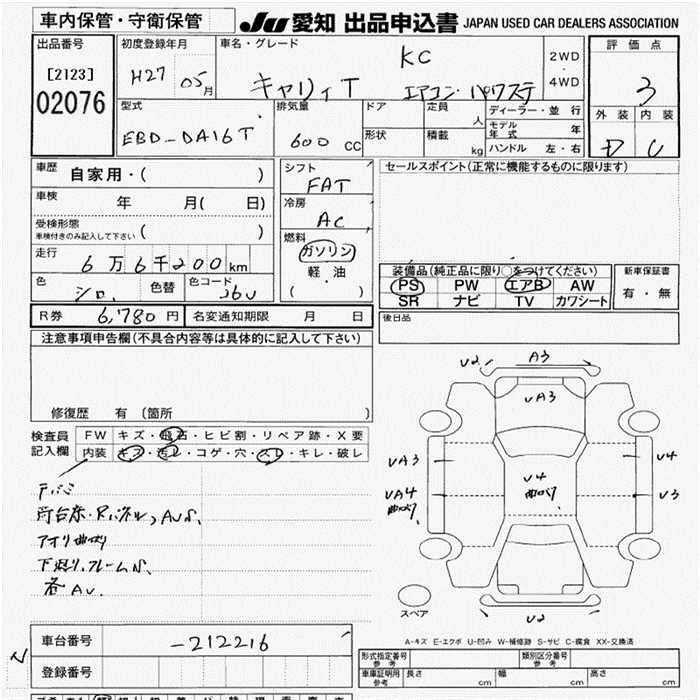 車内保管・守衛保管
Ju 愛知 出品申込書 JAPAN USED CAR DEALERS ASSOCIATION
出品番号
[2123]
02076
初度登録年月
H27 05月
車名・グレード
KC
キャリイT エアコン・パワステ
2WD
4WD
評価点
3
外装 内装
D C
型式
EBD-DA16T
排気量
600 CC
ドア
形状
定員
人
積載
kg
ディーラー・並行
モデル年式 年
ハンドル 左・右
車歴
自家用・( )
車検
年 月( 日)
受検形態
車検付きのみ記入して下さい ( )
走行
6万6千200km
色
シロ
色替
色コード
26U
シフト
FAT
冷房
AC
燃料
ガソリン
軽・油
( )
セールスポイント(正常に機能するものに限ります)
装備品(純正品に限り○をつけてください)
PS PW エアB AW
SR ナビ TV カワシート
新車保証書
有・無
R券 6,780円
名変通知期限 月 日
後日品
注意事項申告欄(不具合内容等は具体的に記入して下さい)
修復歴 有 〔箇所 〕
検査員
記入欄
FW キズ・飛石・ヒビ割・リペア跡・X要
内装 キズ・汚レ・コゲ・穴・スレ・キレ・破レ
荷台床・Rパネル、AUS.
アオリ曲り
下廻り、フレームS.
各AU.
U2 A3
UA3
UA3
UA4
曲り
U4
曲り
U4
U3
U2
スペア
A-キズ E-エクボ U-凹み W-補修跡 S-サビ C-腐食 XX-交換済
車台番号
-212216
登録番号
形式指定番号
参考
類別区分番号
参考
車庫証明用
参考
長さ cm
幅 cm
高さ cm